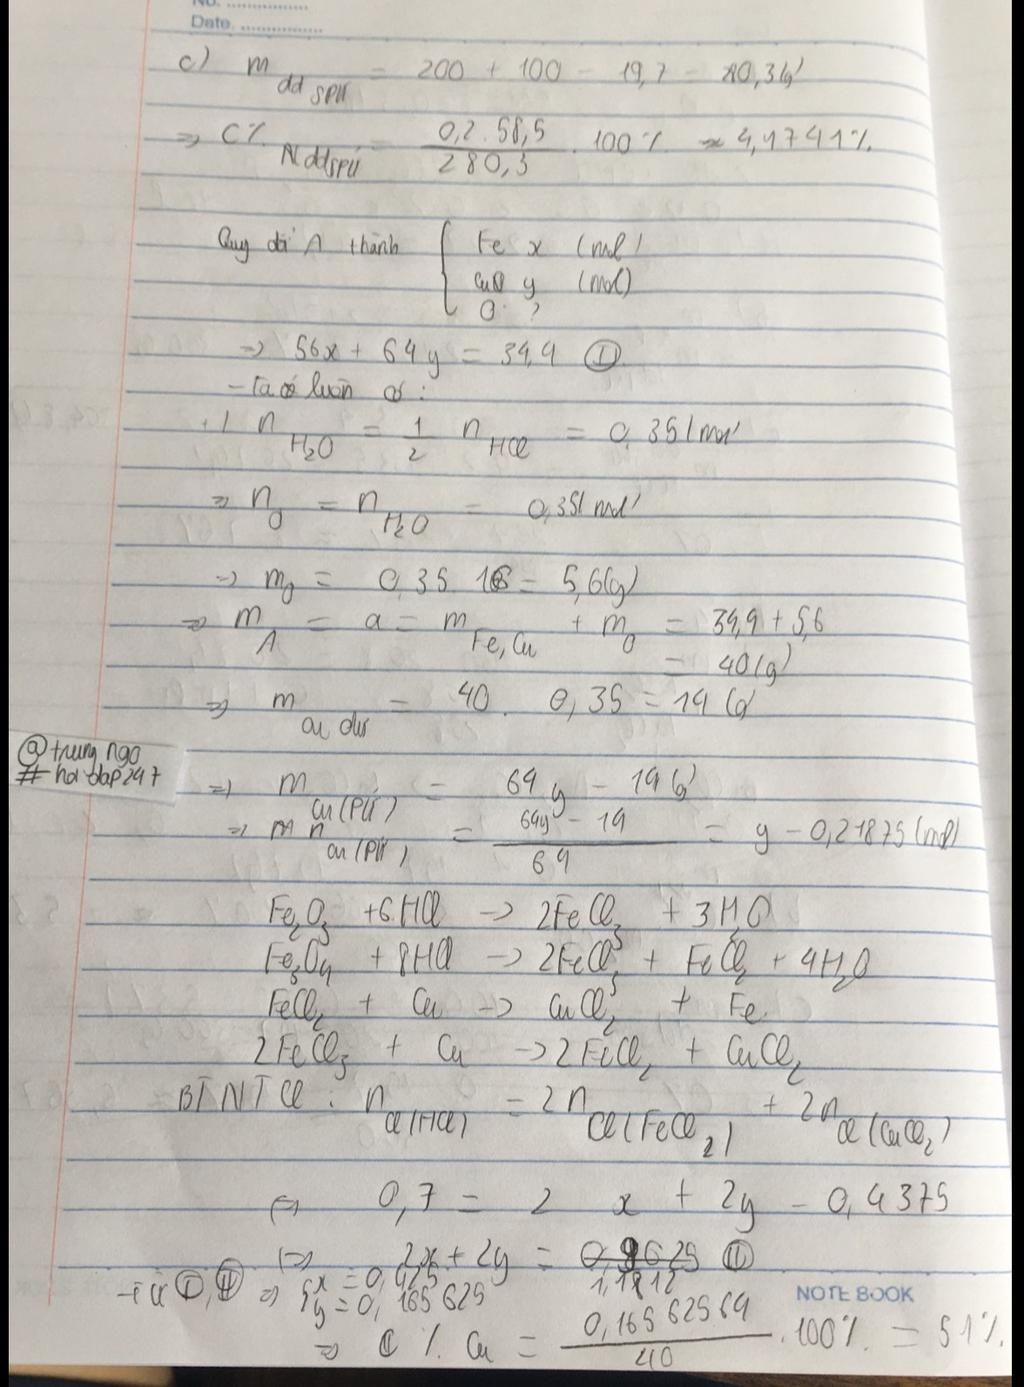 No. ..............
Date. ..............
c) m dd SPƯ = 200 + 100 - 19,7 = 280,3 (g)
=> C% Nddspư = 0,2 . 58,5 / 280,3 . 100% ≈ 4,1741%
Quy đổi A thành { Fe x (mol)
Cu y (mol)
O ?
=> 56x + 64y = 34,4 (I)
- Ta có luôn có:
+) n H₂O = 1/2 n HCl = 0,35 (mol)
=> n O = n H₂O = 0,35 (mol)
=> m O = 0,35 . 16 = 5,6 (g)
=> m A = a = m Fe, Cu + m O = 34,4 + 5,6
= 40 (g)
=> m cu dư = 40 . 0,35 = 14 (g)
@trung ngo
# hoidap247
=> m Cu (PƯ) = 64y - 14 (g)
=> m n cu (PƯ) = 64y - 14 / 64 = y - 0,21875 (mol)
Fe₂O₃ + 6HCl -> 2FeCl₃ + 3H₂O
Fe₃O₄ + 8HCl -> 2FeCl₃ + FeCl₂ + 4H₂O
FeCl₂ + Cu -> CuCl₂ + Fe
2FeCl₃ + Cu -> 2FeCl₂ + CuCl₂
BTNT Cl : n Cl (HCl) = 2n Cl (FeCl₂) + 2n Cl (CuCl₂)
<=> 0,7 = 2 x + 2y - 0,4375
<=> 2x + 2y = (II)
- Từ (I), (II) => { x = 0,
y = 0,165625
NOTE BOOK
=> % Cu = 0,165625 64 / 40 . 100% = 51%